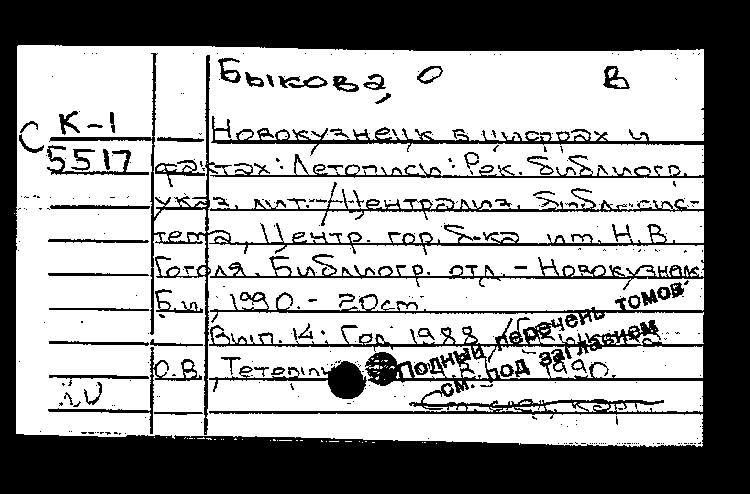 Быкова, О В
С К-1
5517
Новокузнецк в цифрах и
фактах: Летопись: Рек. библиогр.
указ. лит. / Централиз. библ. сис-
тема, Центр. гор. б-ка им. Н.В.
Гоголя. Библиогр. отд. - Новокузнецк:
Б.и., 1990. - 20см.
Вып. 14: Год 1988 /
О.В., 1990.
Полный перечень томов
см. под заглавием
См. след. карт.